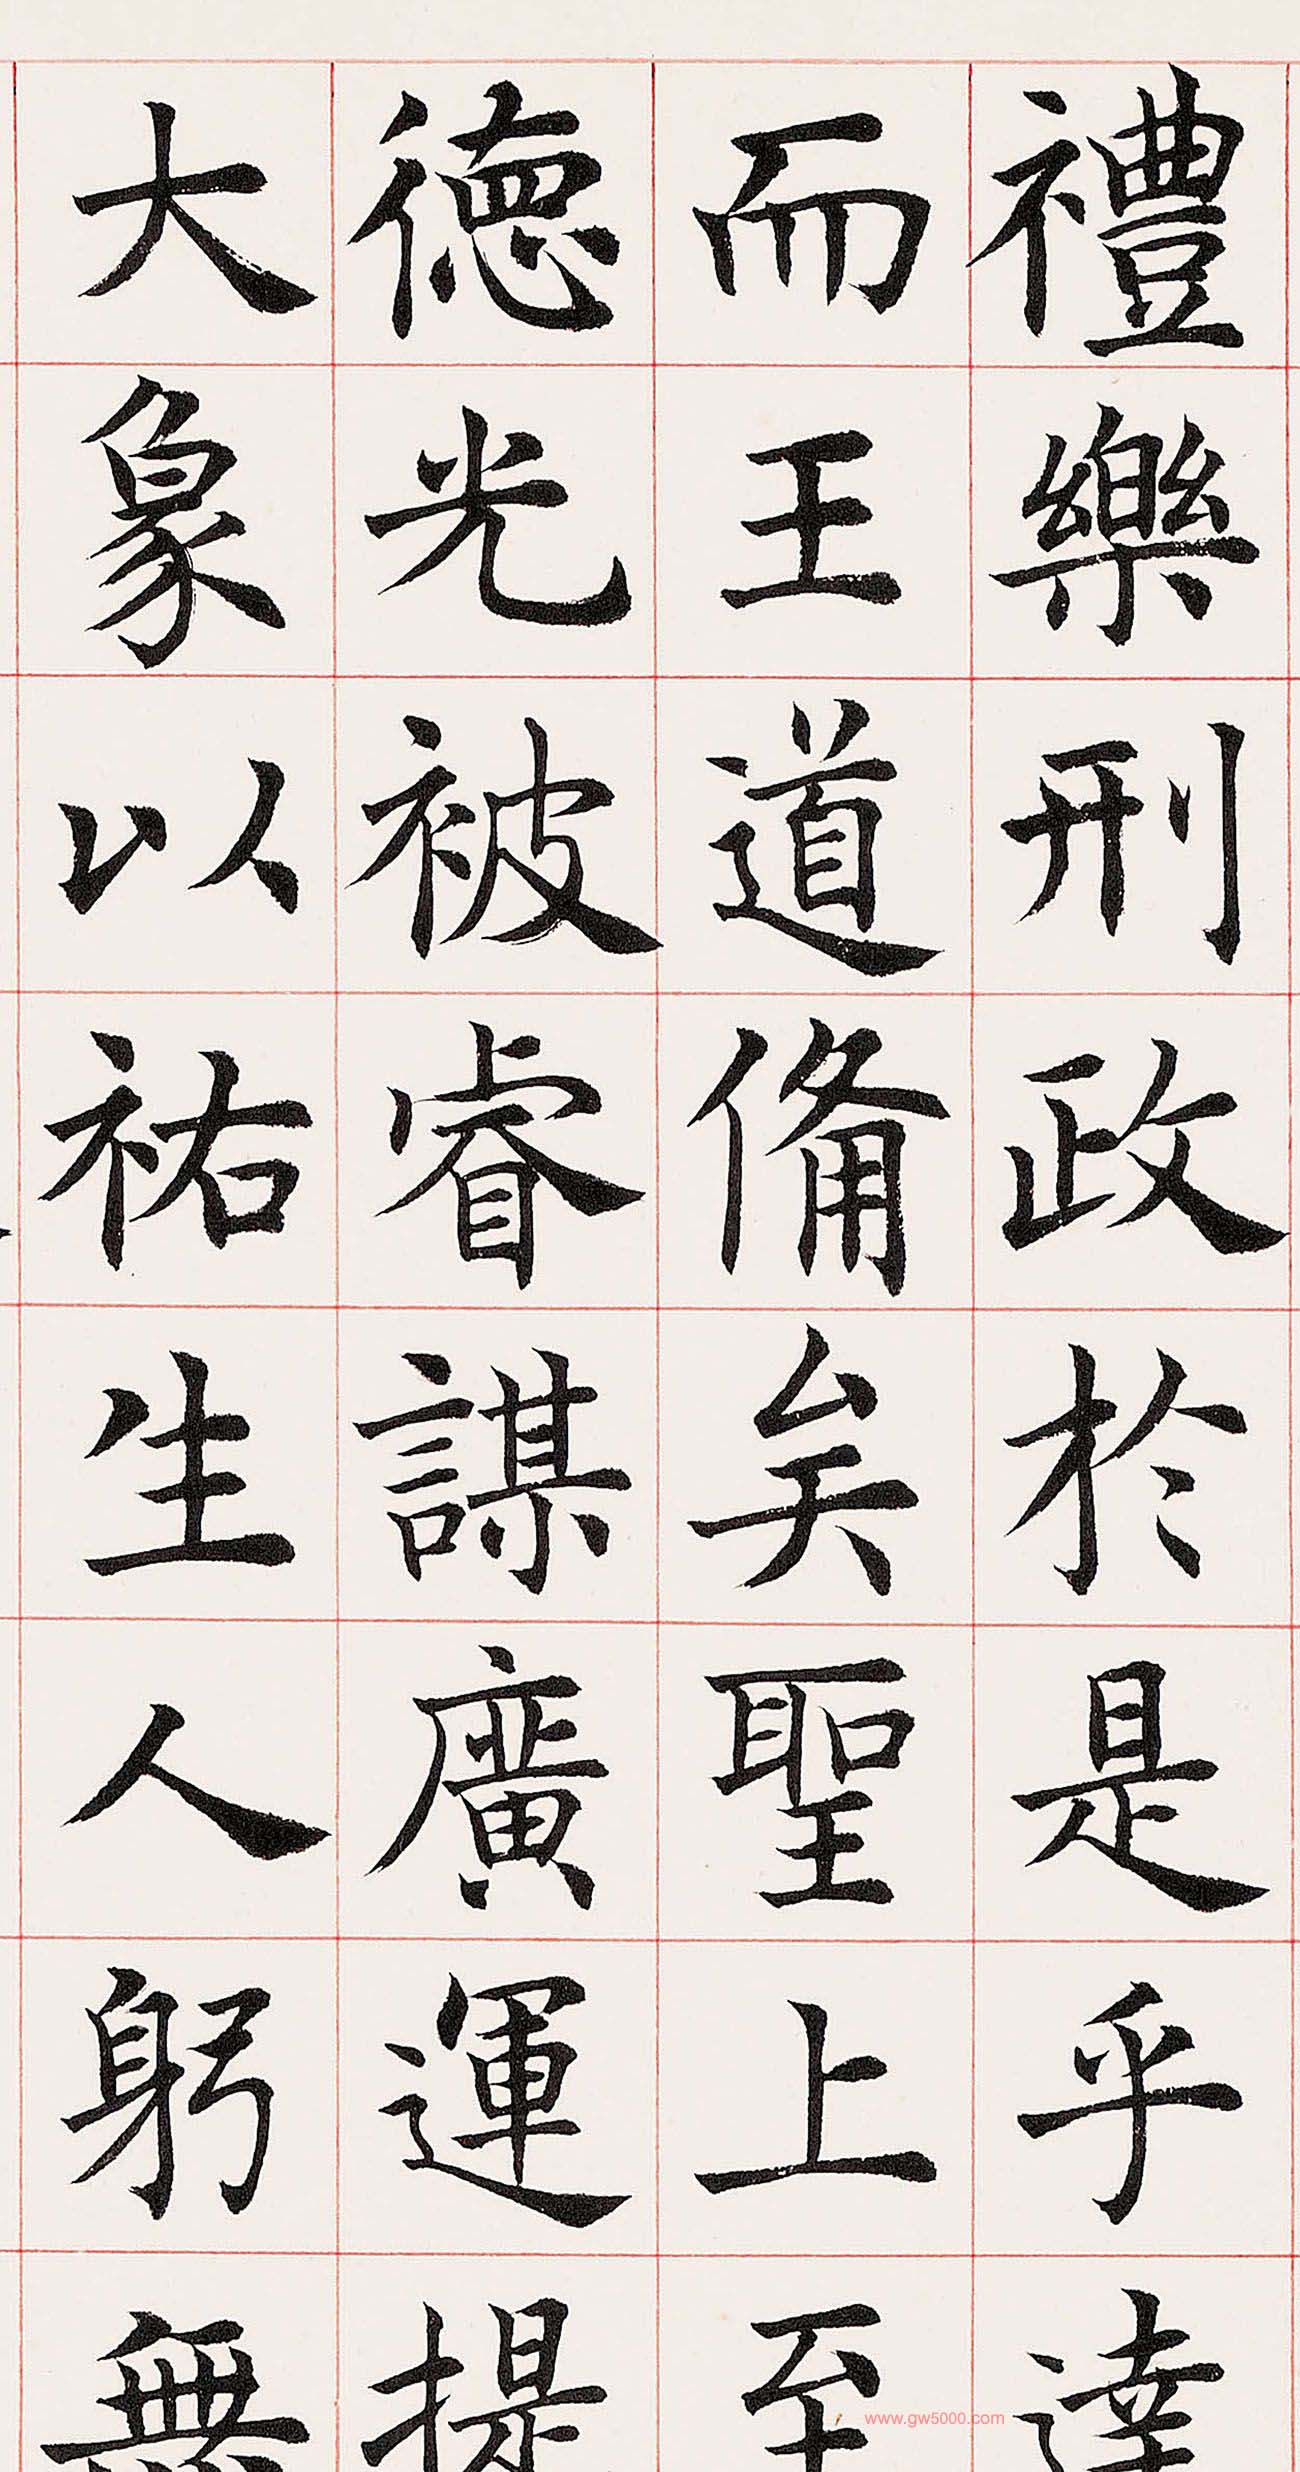 禮樂刑政於是乎達
而王道俻矣聖上至
德光被睿謀廣運提
大象以祐生人躬無
www.gw5000.com